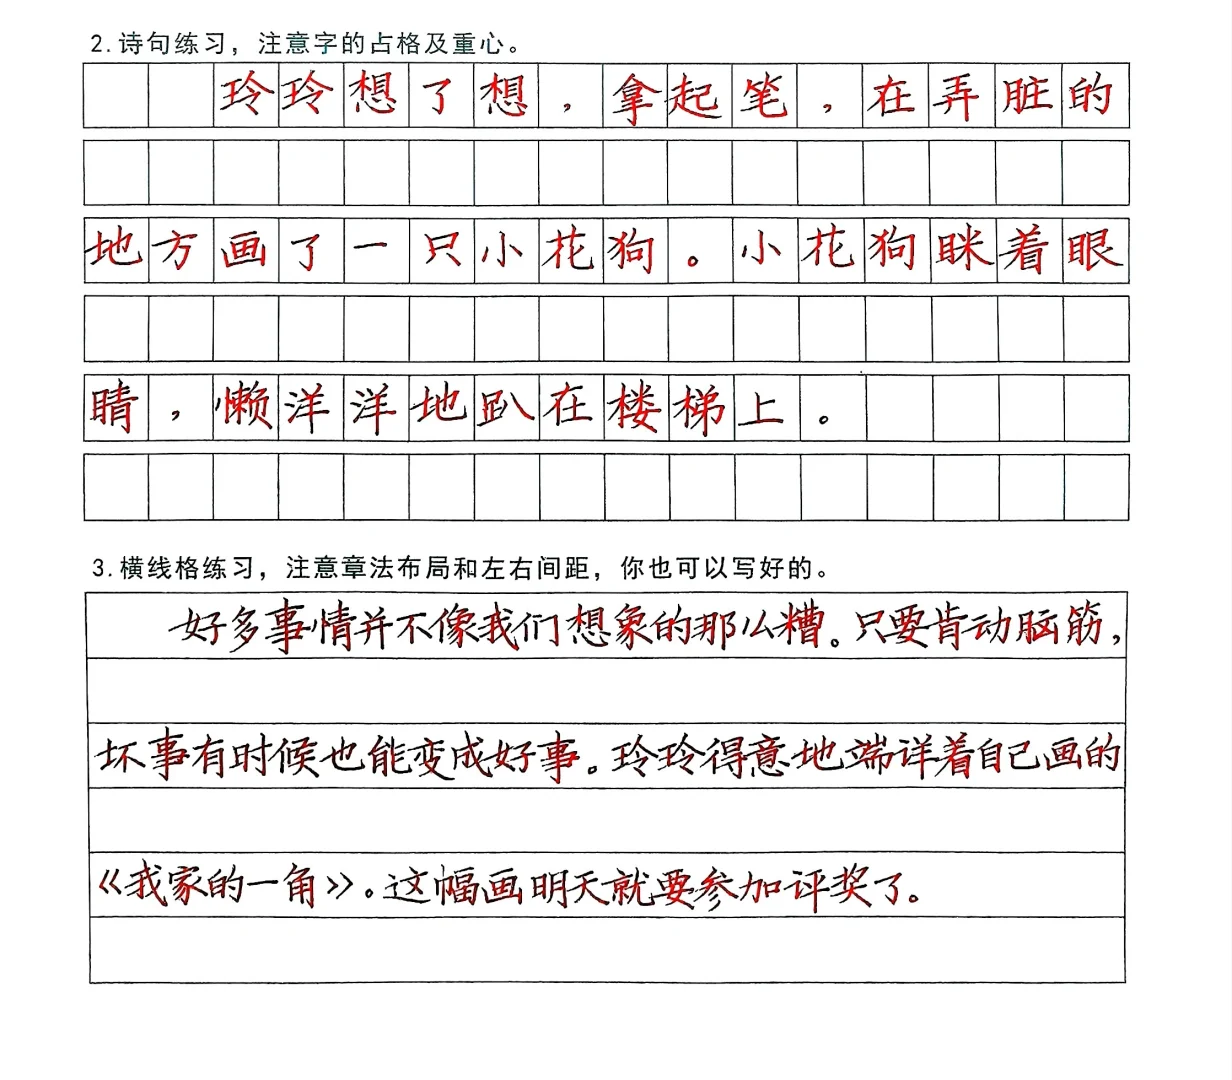 2.诗句练习，注意字的占格及重心。
玲玲想了想，拿起笔，在弄脏的
地方画了一只小花狗。小花狗眯着眼
睛，懒洋洋地趴在楼梯上。
3.横线格练习，注意章法布局和左右间距，你也可以写好的。
好多事情并不像我们想象的那么糟。只要肯动脑筋，
坏事有时候也能变成好事。玲玲得意地端详着自己画的
《我家的一角》。这幅画明天就要参加评奖了。